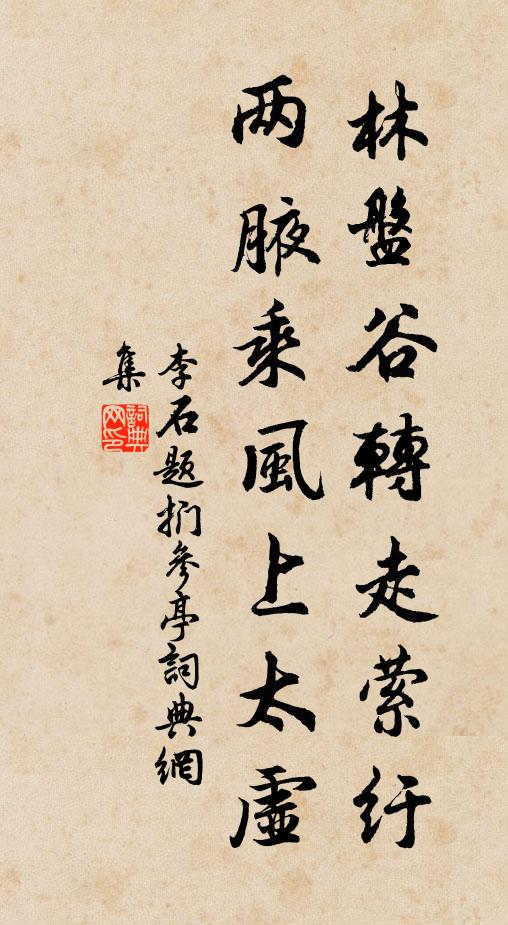 林盤谷轉走萦紆
两腋乘風上太虛
李石题捫參亭詞典網
集
詞典网印